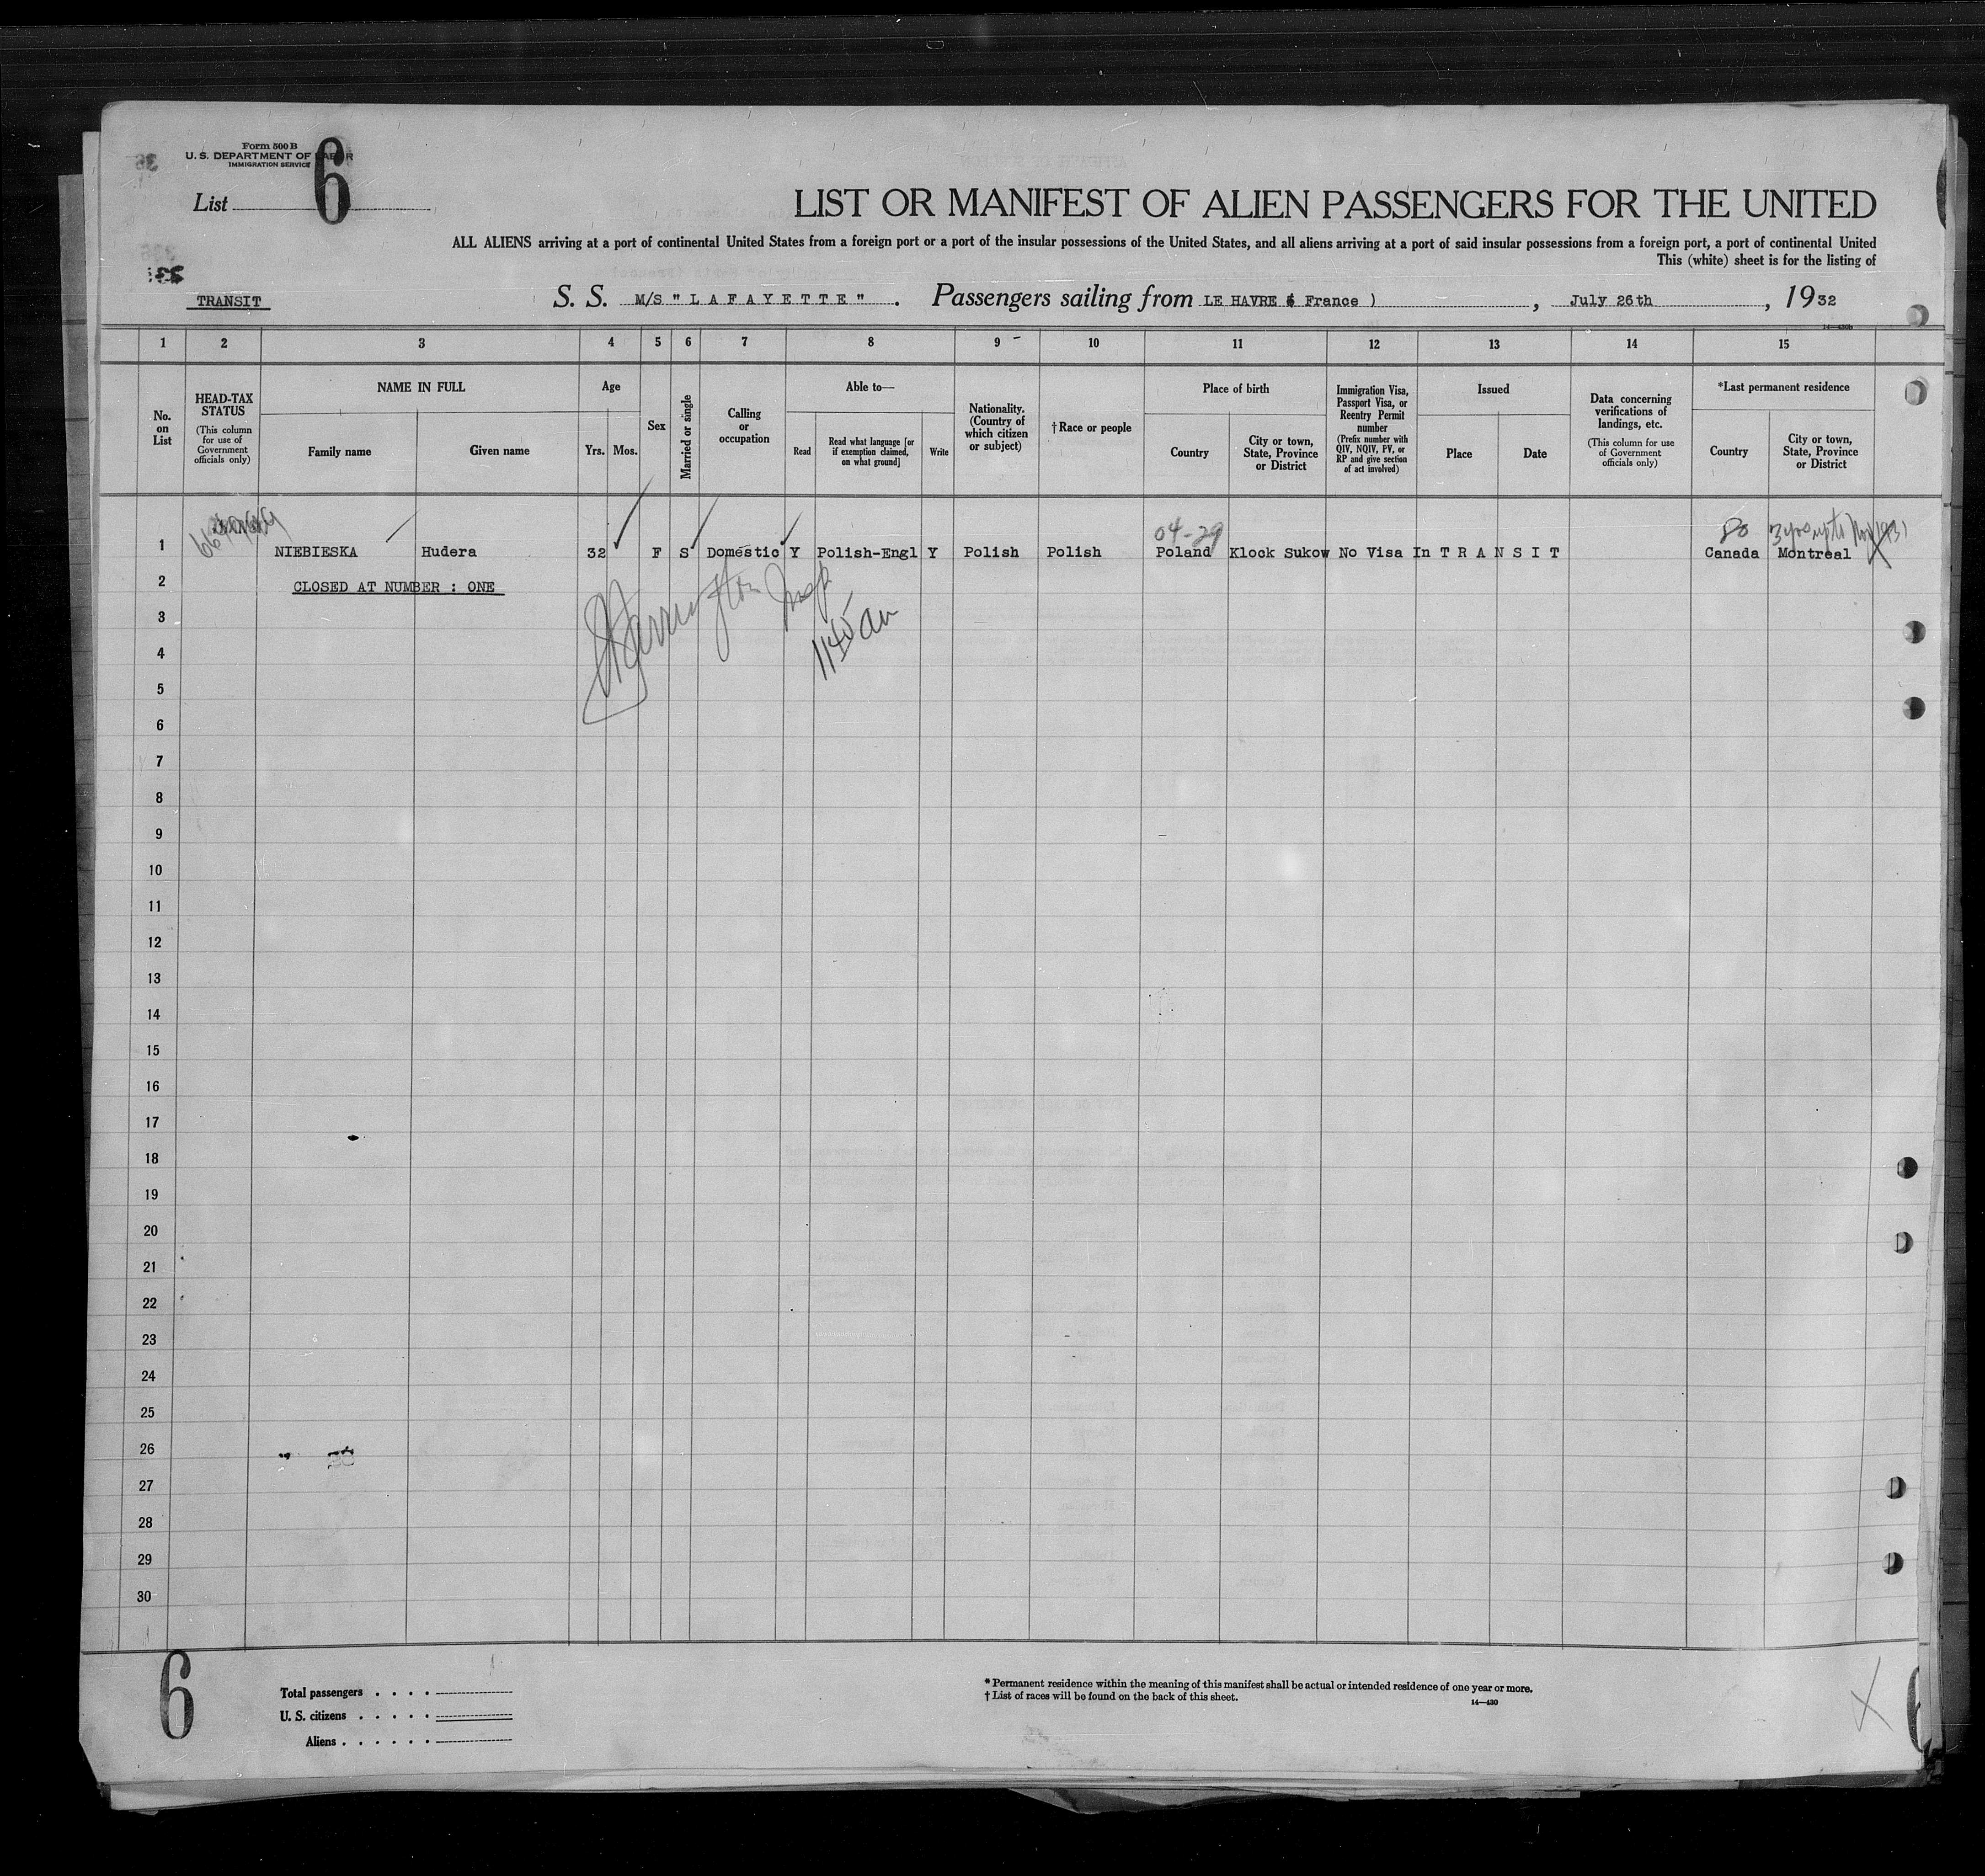 Form 500 B
U. S. DEPARTMENT OF LABOR
IMMIGRATION SERVICE
List 6
LIST OR MANIFEST OF ALIEN PASSENGERS FOR THE UNITED
ALL ALIENS arriving at a port of continental United States from a foreign port or a port of the insular possessions of the United States, and all aliens arriving at a port of said insular possessions from a foreign port, a port of continental United
This (white) sheet is for the listing of
TRANSIT
S. S. M/S " L A F A Y E T T E " . Passengers sailing from LE HAVRE ( France ) , July 26th , 1932
1 2 3 4 5 6 7 8 9 10 11 12 13 14 15
No. on List
HEAD-TAX STATUS
(This column for use of Government officials only)
NAME IN FULL
Family name
Given name
Age
Yrs.
Mos.
Sex
Married or single
Calling or occupation
Able to—
Read
Read what language [or if exemption claimed, on what ground]
Write
Nationality. (Country of which citizen or subject)
† Race or people
Place of birth
Country
City or town, State, Province or District
Immigration Visa, Passport Visa, or Reentry Permit number
(Prefix number with QIV, NQIV, PV, or RP and give section of act involved)
Issued
Place
Date
Data concerning verifications of landings, etc.
(This column for use of Government officials only)
*Last permanent residence
Country
City or town, State, Province or District
04-29
1 NIEBIESKA Hudera 32 F S Domestic Y Polish-Engl Y Polish Polish Poland Klock Sukow No Visa In T R A N S I T Canada Montreal
2 CLOSED AT NUMBER : ONE
3
1145 am
4
5
6
7
8
9
10
11
12
13
14
15
16
17
18
19
20
21
22
23
24
25
26
27
28
29
30
6
Total passengers . . . .
U. S. citizens . . . . .
Aliens . . . . . .
* Permanent residence within the meaning of this manifest shall be actual or intended residence of one year or more.
† List of races will be found on the back of this sheet.
14—430